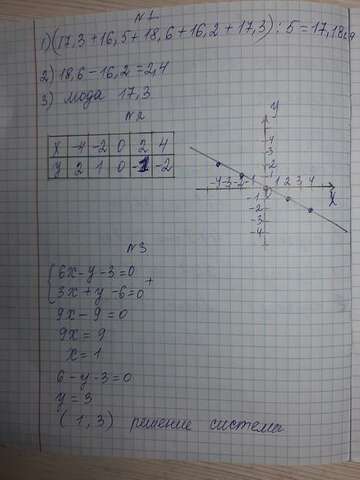 №1
1) (17,3 + 16,5 + 18,6 + 16,2 + 17,3) : 5 = 17,18
2) 18,6 - 16,2 = 2,4
3) мода 17,3
№2
x -4 -2 0 2 4
y 2 1 0 -1 -2
y
4
3
2
1
-4 -3 -2 -1 1 2 3 4
x
-1
-2
-3
-4
№3
{6x - y - 3 = 0
{3x + y - 6 = 0 +
9x - 9 = 0
9x = 9
x = 1
6 - y - 3 = 0
y = 3
(1, 3) решение система